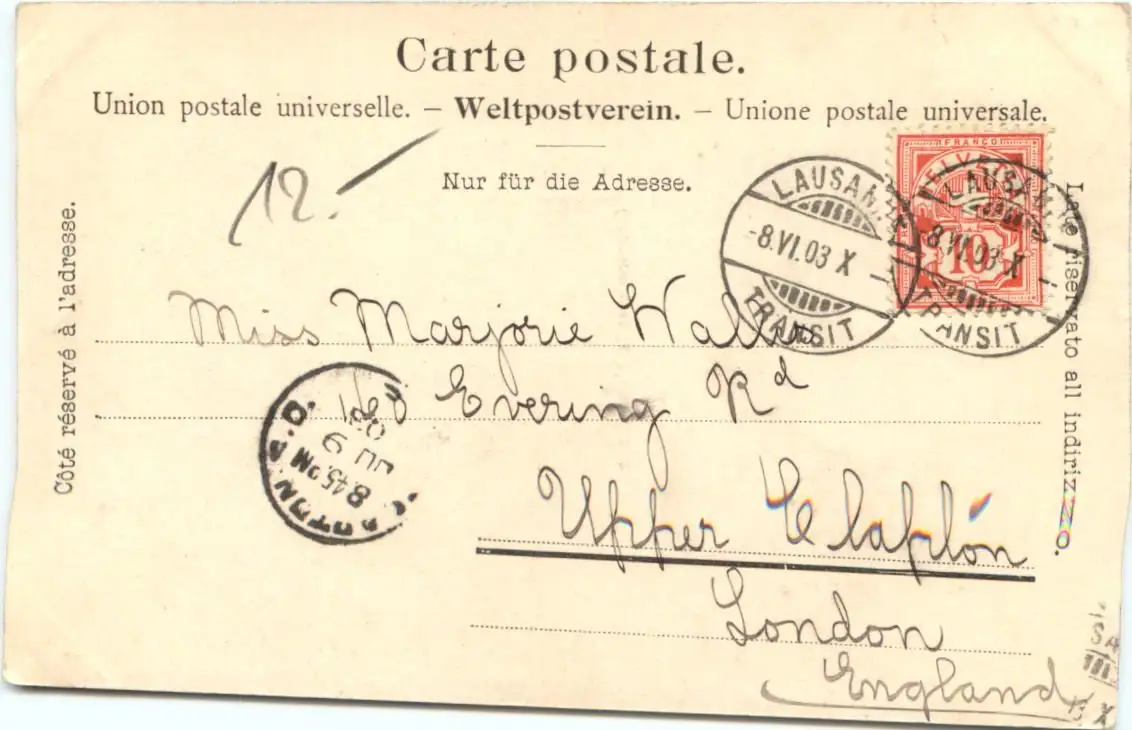 Carte postale.
Union postale universelle. – Weltpostverein. – Unione postale universale.
Nur für die Adresse.
12.-
Côté réservé à l'adresse.
Lato riservato all indirizzo.
FRANCO
HELVETIA
10
LAUSANNE
-8.VI.03 X
TRANSIT
LAUSANNE
-8.VI.03 X
TRANSIT
Miss Marjorie Wallis
Evering Rd
Upper Clapton
London
England
CLAPTON S.O.
8.45 PM
JU 9
03
SA
X